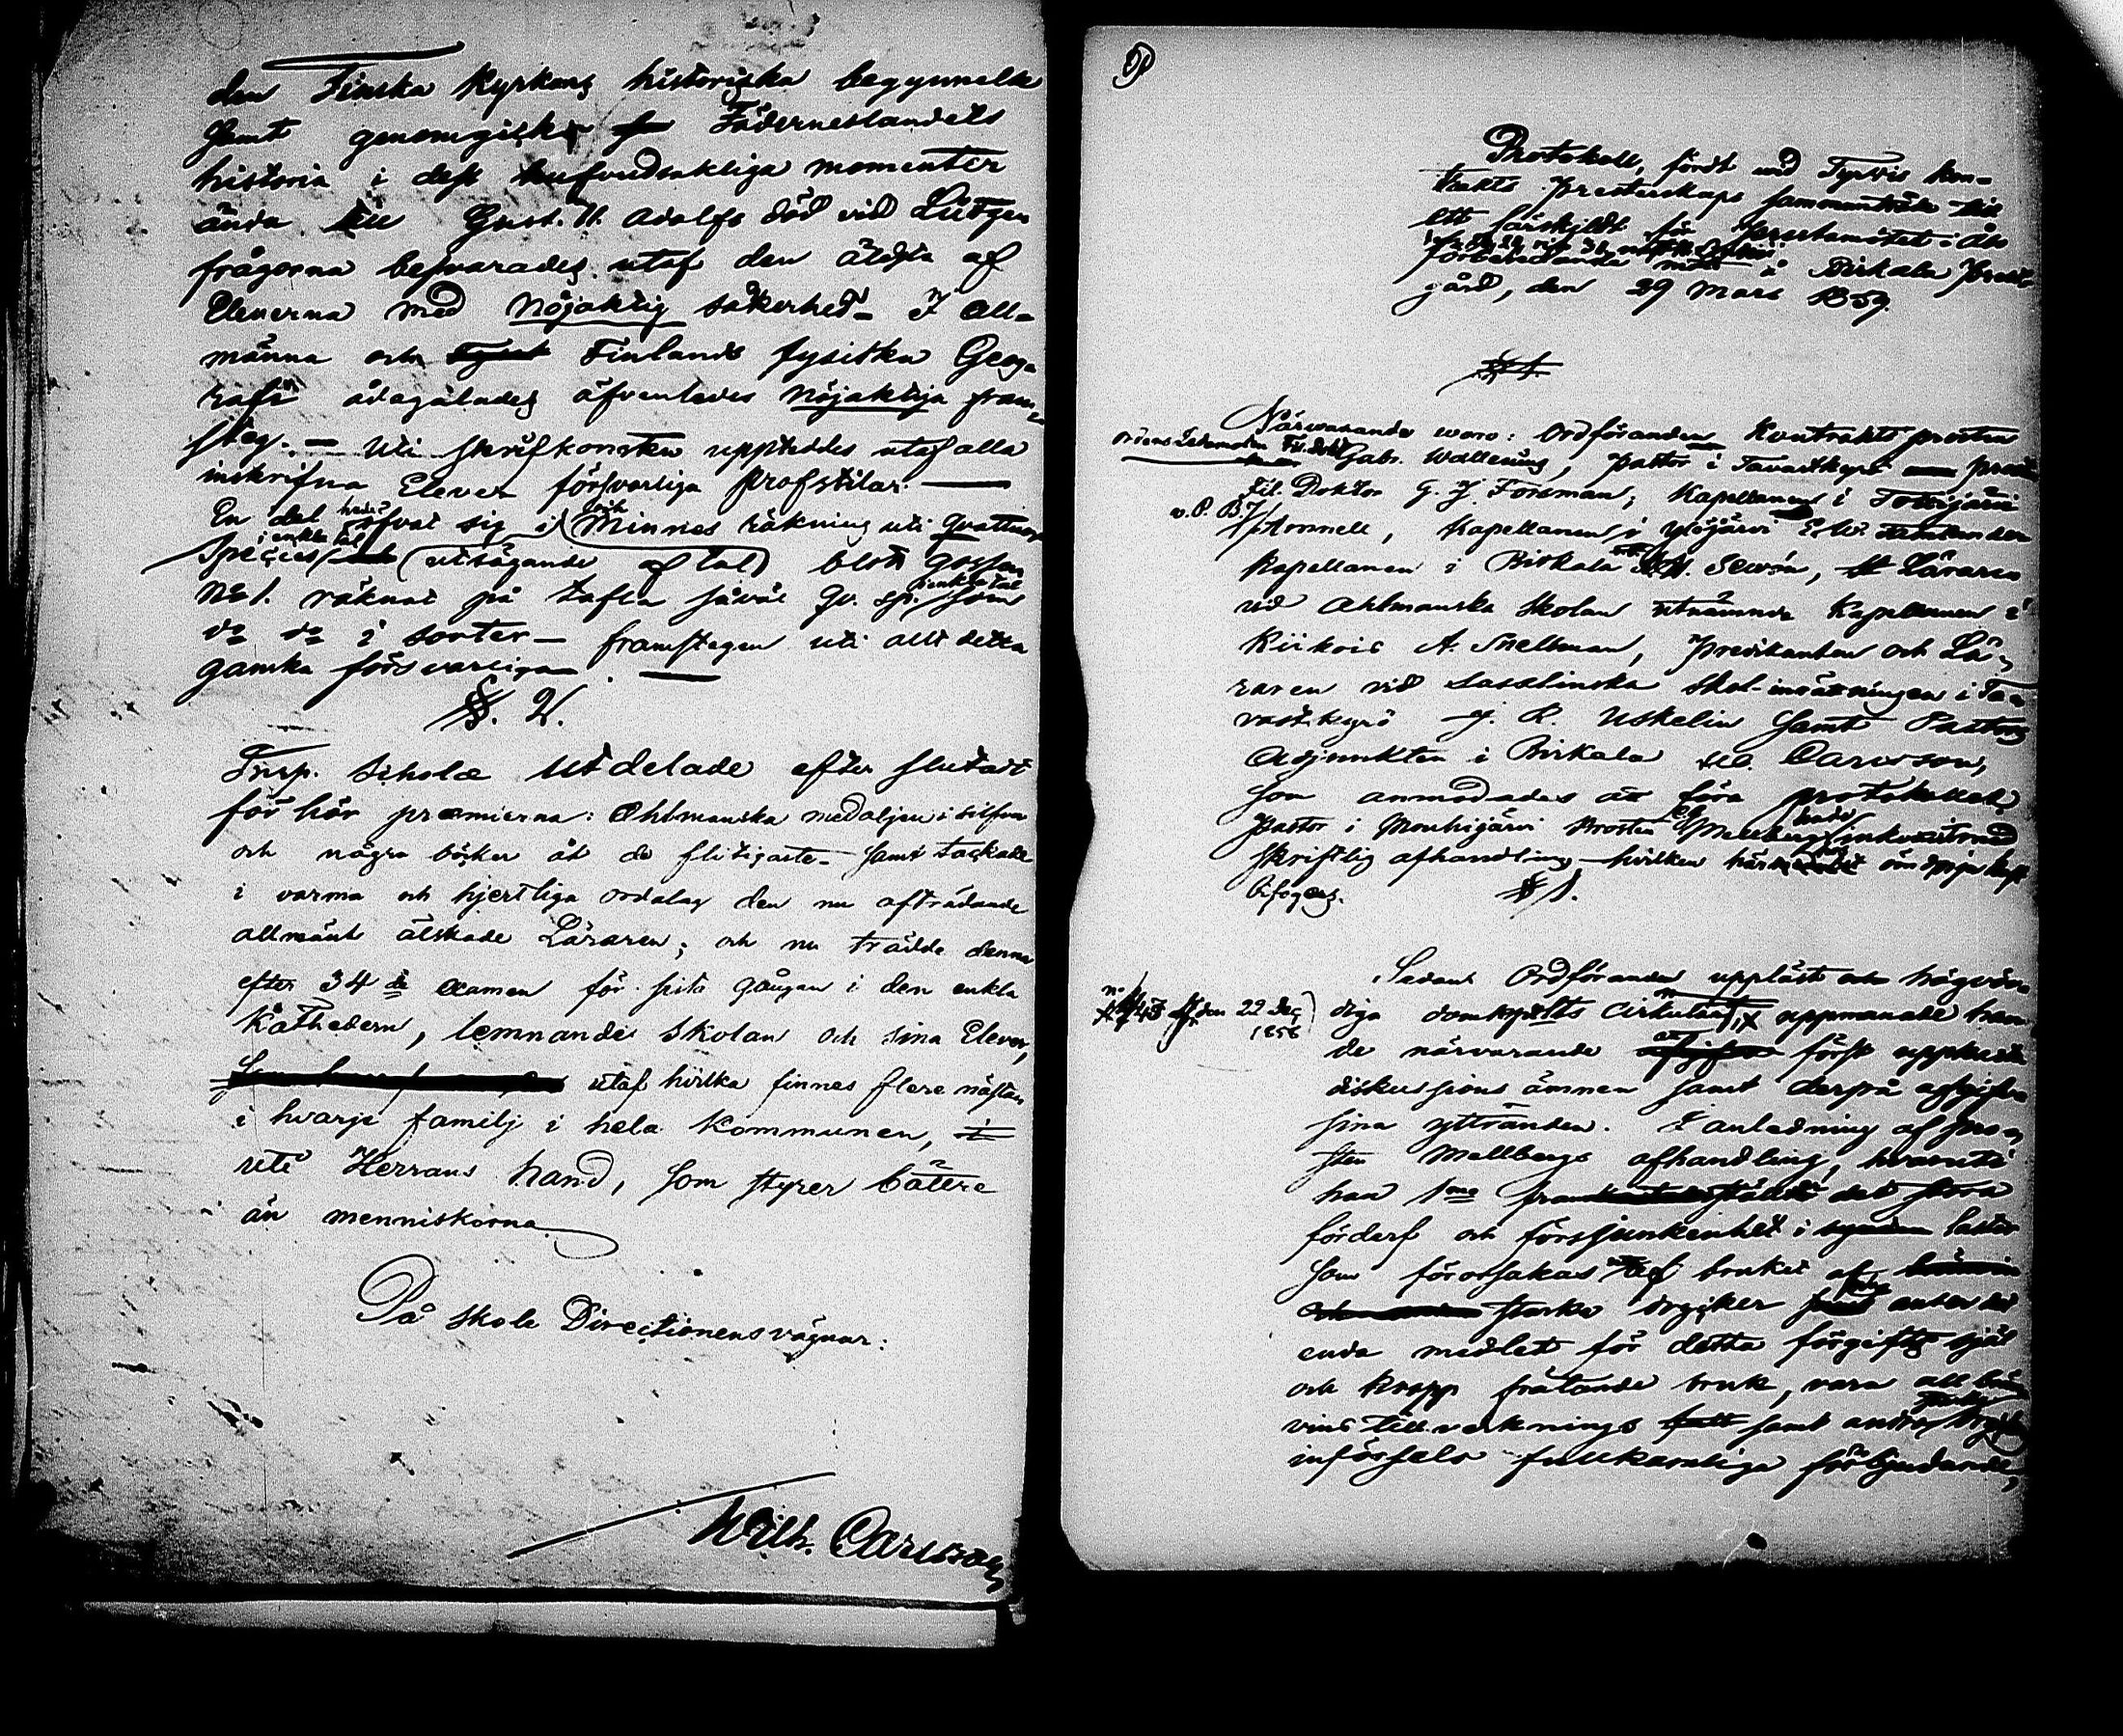 den Finska Kyrkans historiska begynnelse
samt genomgicks Fäderneslandets
historia i dess hufvudsakliga momenter
ända till Gust. II. Adolfs död vid Lützen
frågorna besvarades utaf den äldsta af
Eleverna med nöjaktig säkerhet – I all-
männa och Finlands fysiska Geog-
rafi ådagalades äfvenledes nöjaktiga fram-
steg. – Uti skrifkonsten uppteddes utaf alla
inskrifna Elever försvarliga profstilar. —
En del hade öfvat sig i och Minnes räkning uti qvattuor
Species i enkla tal (utsägande af tal) blott gossen
No 1. räknat på tafla såväl qv. sp. i enkla tal som
do do i sorter – framstegen uti allt detta
ganska försvarliga. —
§. 2.
Insp. Scholæ utdelade efter slutadt
förhör præmierna: Ahlmanska medaljen i silfver
och några böcker åt de flitigaste – samt tackade
i varma och hjertliga ordalag den nu afträdande
allmänt älskade Läraren; och nu trädde denna
efter 34 de examen för sista gången i den enkla
Kathedern, lemnande skolan och sina Elever,
utaf hvilka finnes flere nästan
i hvarje familj i hela kommunen, i
uti Herrans hand, som styrer bättre
än menniskorna
På Skole Directionens vägnar:
Wilh. Carlsson
Protokoll, fördt vid Tyrvis kon-
trakts Presterskaps sammanträde till
ett särskildt för Prestamötet i Åbo
förberedande möte i Birkala Prest-
gård, den 29 Mars 1859.
§ 1.
Närvarande woro: Ordföranden Kontrakts prosten
Ordens Ledamoten Fil. Dokt Gabr. Wallenius, Pastor i Tavastkyrö Prosten
Fil. Doktor G. J. Forsman, Kapellanen i Tottijärvi
v. P. B. J. Homnell, Kapellanen i Ylöjärvi E. W.
Kapellanen i Birkala Sewón, Läraren
vid Ahlmanska Skolan utnämnde Kapellanen i
Kiikois A. Snellman, Predikanten och Lä-
raren vid Sasslinska Skol-inrättningen i Ta-
vastkyrö J. R. Uskelin samt Pastors
Adjunkten i Birkala W. Carlsson,
som anmodades att föra protokollet,
Pastor i Mouhijärvi Prosten Mellberg hade inkommit med
skriftlig afhandling – hvilken här
bifogas. § 1.
Sedan Ordföranden uppläst och högvör-
No den 22 Dec 1858
diga domkapitlets Cirkulär, uppmanade han
de närvarande att först upptaga
diskussions ämnen samt derpå afgifva
sina yttranden. I anledning af Pro-
sten Mellbergs afhandling, hvaruti
han 1mo det stora
förderf och försjunkenhet i laster
som förorsakas utaf bruket af
starka drycker anser det
enda medlet för detta förgiftg själ
och kropp frätande bruk, vara allt brän-
vins tillverknings samt andra starka drycker
införsels fullkomliga förbjudande,